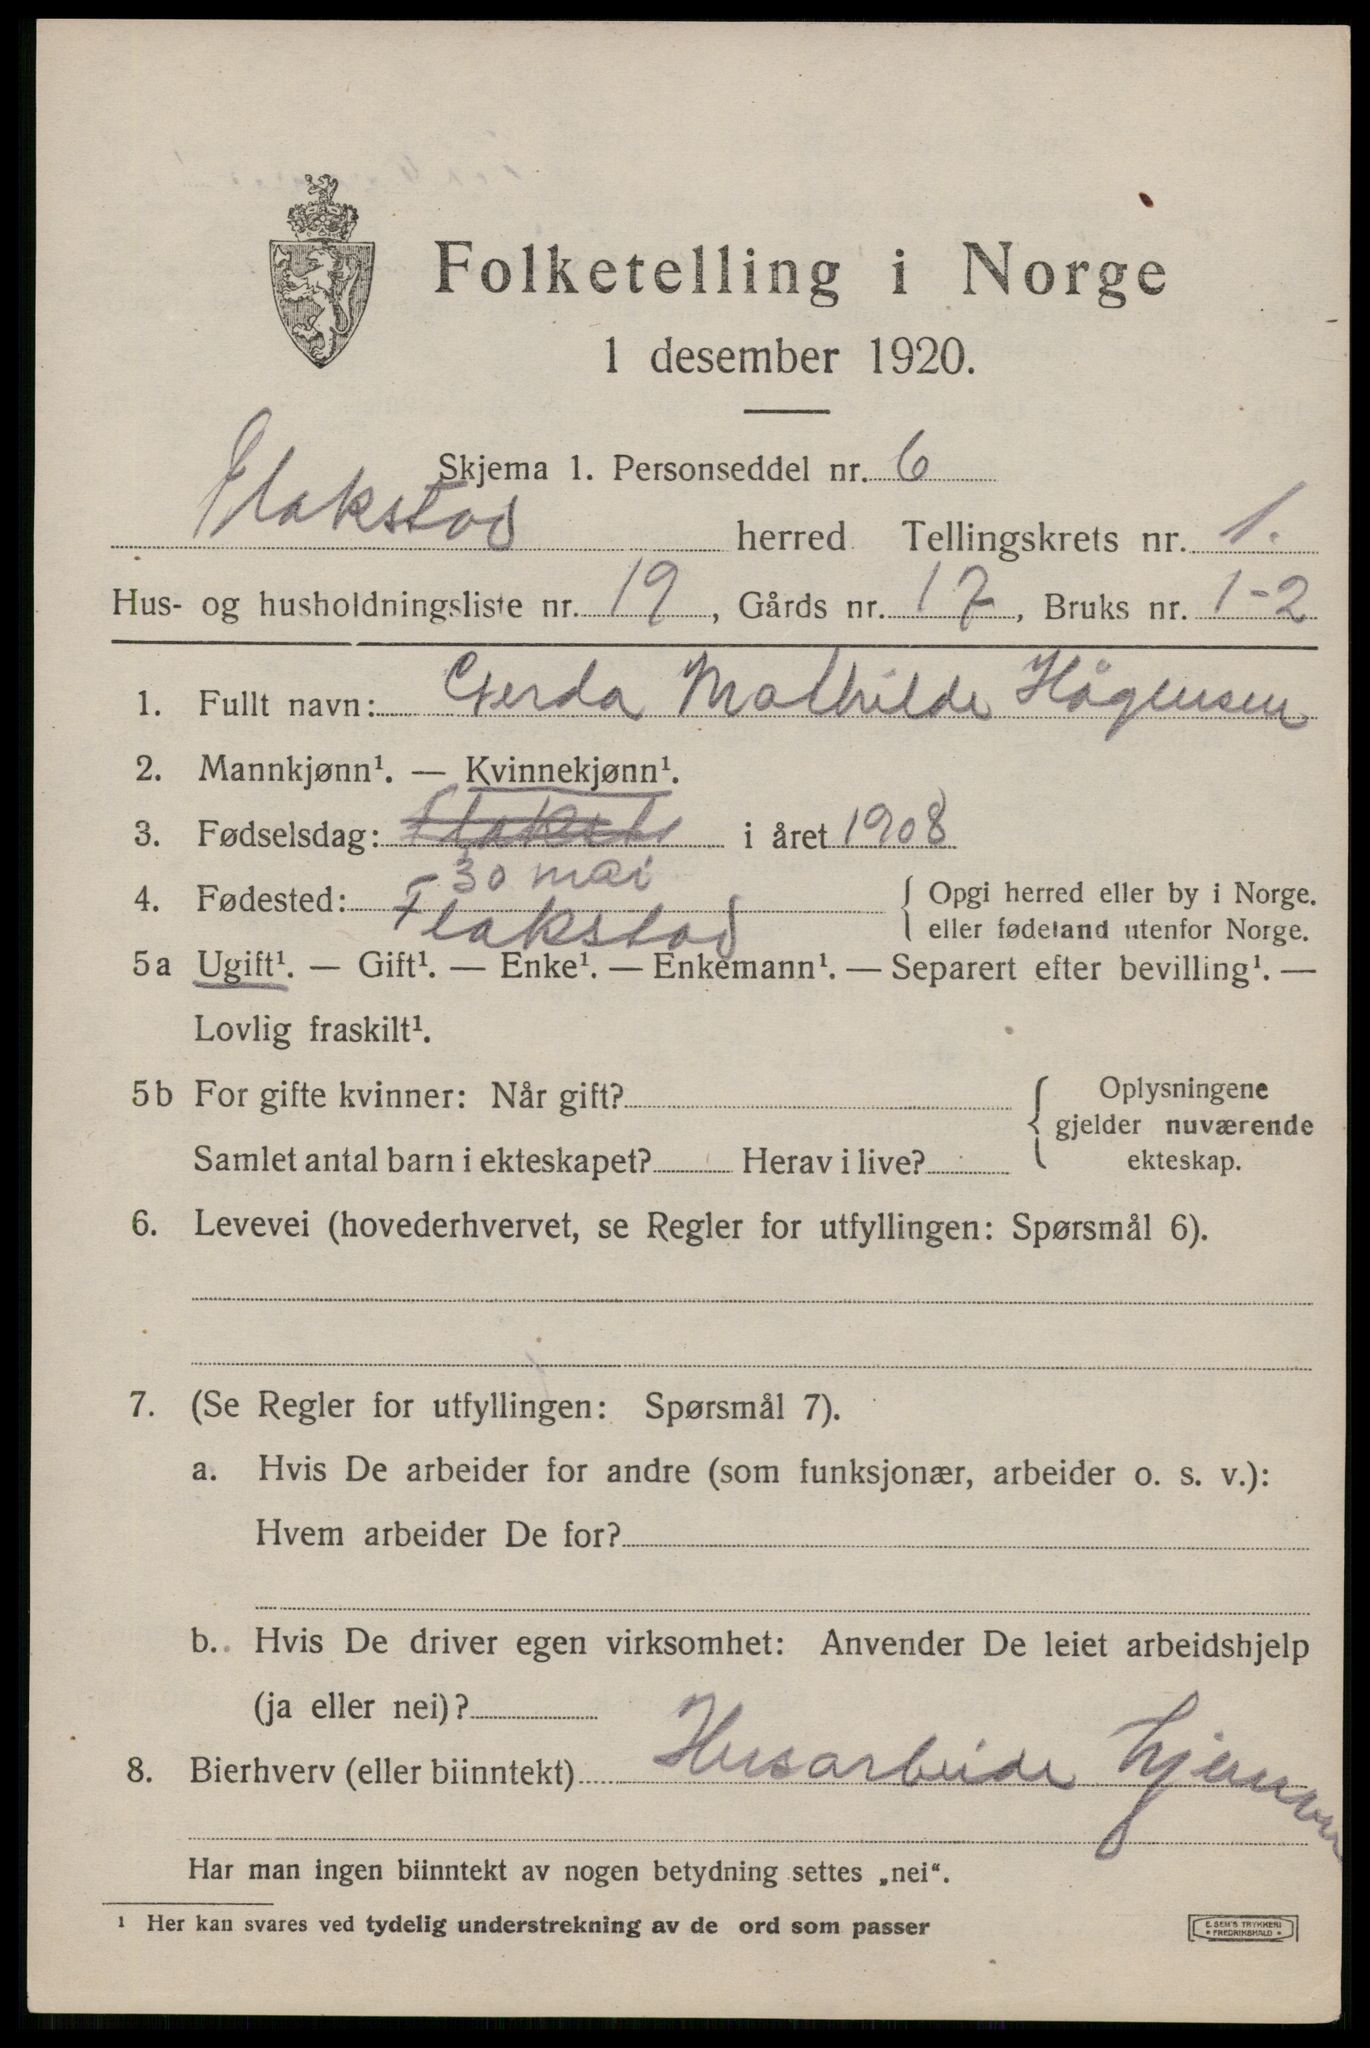 Folketelling i Norge
1 desember 1920.
Skjema 1. Personseddel nr. 6
Flakstad herred Tellingskrets nr. 1.
Hus- og husholdningsliste nr. 19, Gårds nr. 17, Bruks nr. 1-2
1. Fullt navn: Gerda Mathilde Hågensen
2. Mannkjønn¹. — Kvinnekjønn¹.
3. Fødselsdag: i året 1908
30 mai
4. Fødested: Flakstad { Opgi herred eller by i Norge.
eller fødeland utenfor Norge.
5a Ugift¹. — Gift¹. — Enke¹. — Enkemann¹. — Separert efter bevilling¹. —
Lovlig fraskilt¹.
5b For gifte kvinner: Når gift? { Oplysningene
gjelder nuværende
Samlet antal barn i ekteskapet? Herav i live? ekteskap.
6. Levevei (hovederhvervet, se Regler for utfyllingen: Spørsmål 6).
7. (Se Regler for utfyllingen: Spørsmål 7).
a. Hvis De arbeider for andre (som funksjonær, arbeider o. s. v.):
Hvem arbeider De for?
b. Hvis De driver egen virksomhet: Anvender De leiet arbeidshjelp
(ja eller nei)?
8. Bierhverv (eller biinntekt) Husarbeide hjemme
Har man ingen biinntekt av nogen betydning settes „nei“.
¹ Her kan svares ved tydelig understrekning av de ord som passer
E. SEM'S TRYKKERI
* FREDRIKSHALD *